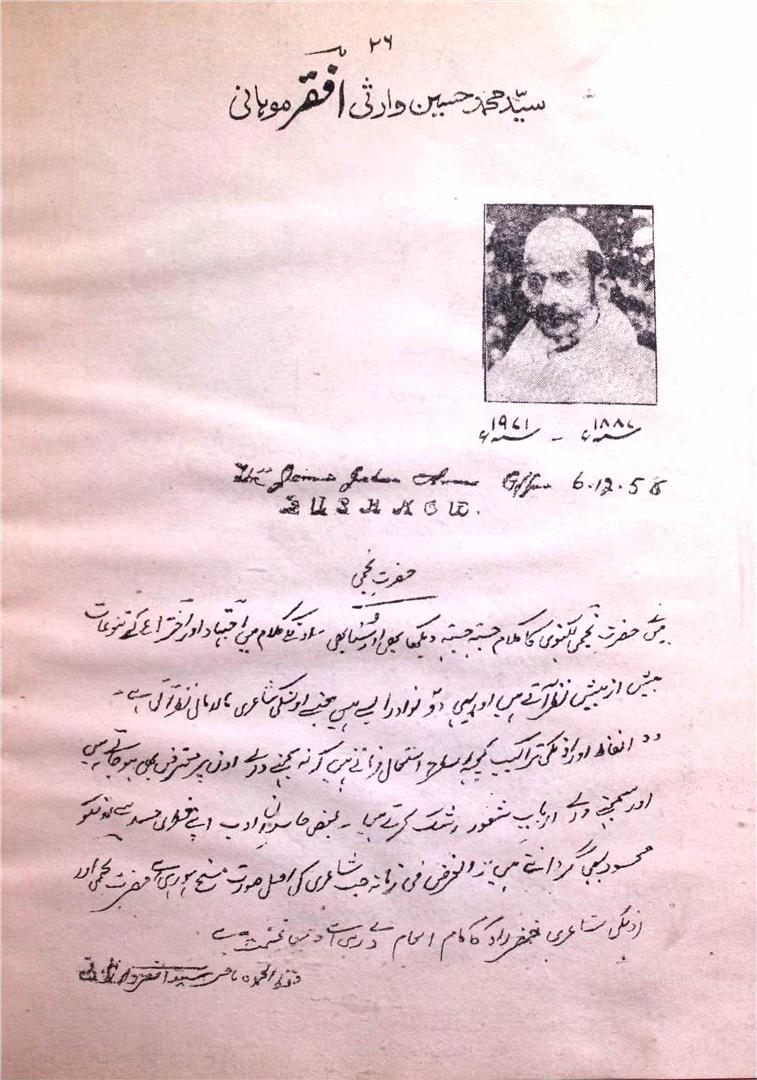 ۲۶
سیّد محمد حسین وارثی افقر موہانی
سنہ ۱۸۸۷ء - سنہ ۱۹۷۱ء
Office 6.12.58
LUCKNOW.
حضرت نجمی
میں نے حضرت نجمی لکھنوی کا کلام جستہ جستہ دیکھا بھی اور سنا بھی۔ کلام میں اجتہاد اور اختراع کے تنوعات
بیش از بیش نظر آتے ہیں اور یہی دو نوادر ایسے ہیں جن سے اونکی شاعری مالامال نظر آتی ہے۔
وہ الفاظ اور اونکی تراکیب کچھ اسطرح استعمال فرماتے ہیں کہ نہ سمجھنے والے اون پر معترض بھی ہو جاتے ہیں
اور سمجھنے والے ارباب شعور رشک کرتے ہیں۔ بعض حاسدانِ ادب اپنے فطری حسد سے اونکو
محسود بھی گردانتے ہیں۔ الغرض فی زمانہ جب شاعری کی اصل صورت مسخ ہو رہی ہے حضرت نجمی اور
اونکی شاعری کا کام انجام دے رہی ہے
سید افقر وارثی